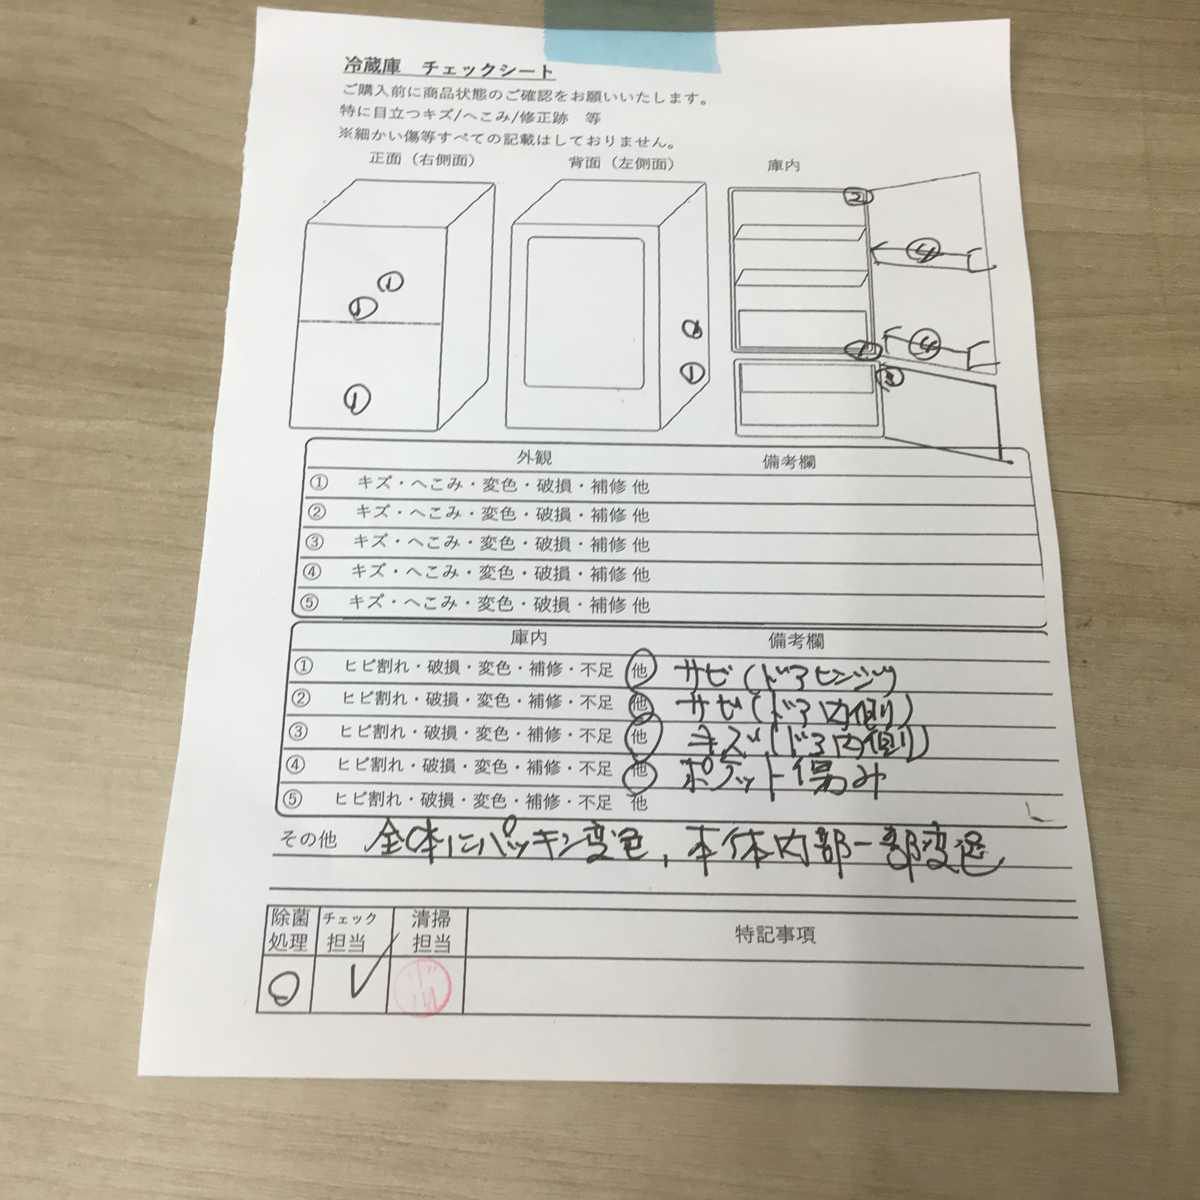 冷蔵庫　チェックシート
ご購入前に商品状態のご確認をお願いいたします。
特に目立つキズ/へこみ/修正跡　等
※細かい傷等すべての記載はしておりません。
正面（右側面） 背面（左側面） 庫内
② ④
①
① ①
④
① ① ③
外観 備考欄
① キズ・へこみ・変色・破損・補修 他
② キズ・へこみ・変色・破損・補修 他
③ キズ・へこみ・変色・破損・補修 他
④ キズ・へこみ・変色・破損・補修 他
⑤ キズ・へこみ・変色・破損・補修 他
庫内 備考欄
① ヒビ割れ・破損・変色・補修・不足 他 サビ（ドアヒンジ
② ヒビ割れ・破損・変色・補修・不足 他 サビ（ドア内側）
③ ヒビ割れ・破損・変色・補修・不足 他 キズ（ドア内側）
④ ヒビ割れ・破損・変色・補修・不足 他 ポケット傷み
⑤ ヒビ割れ・破損・変色・補修・不足 他
その他 全体にパッキン変色、本体内部一部変色
除菌処理 チェック担当 清掃担当 特記事項